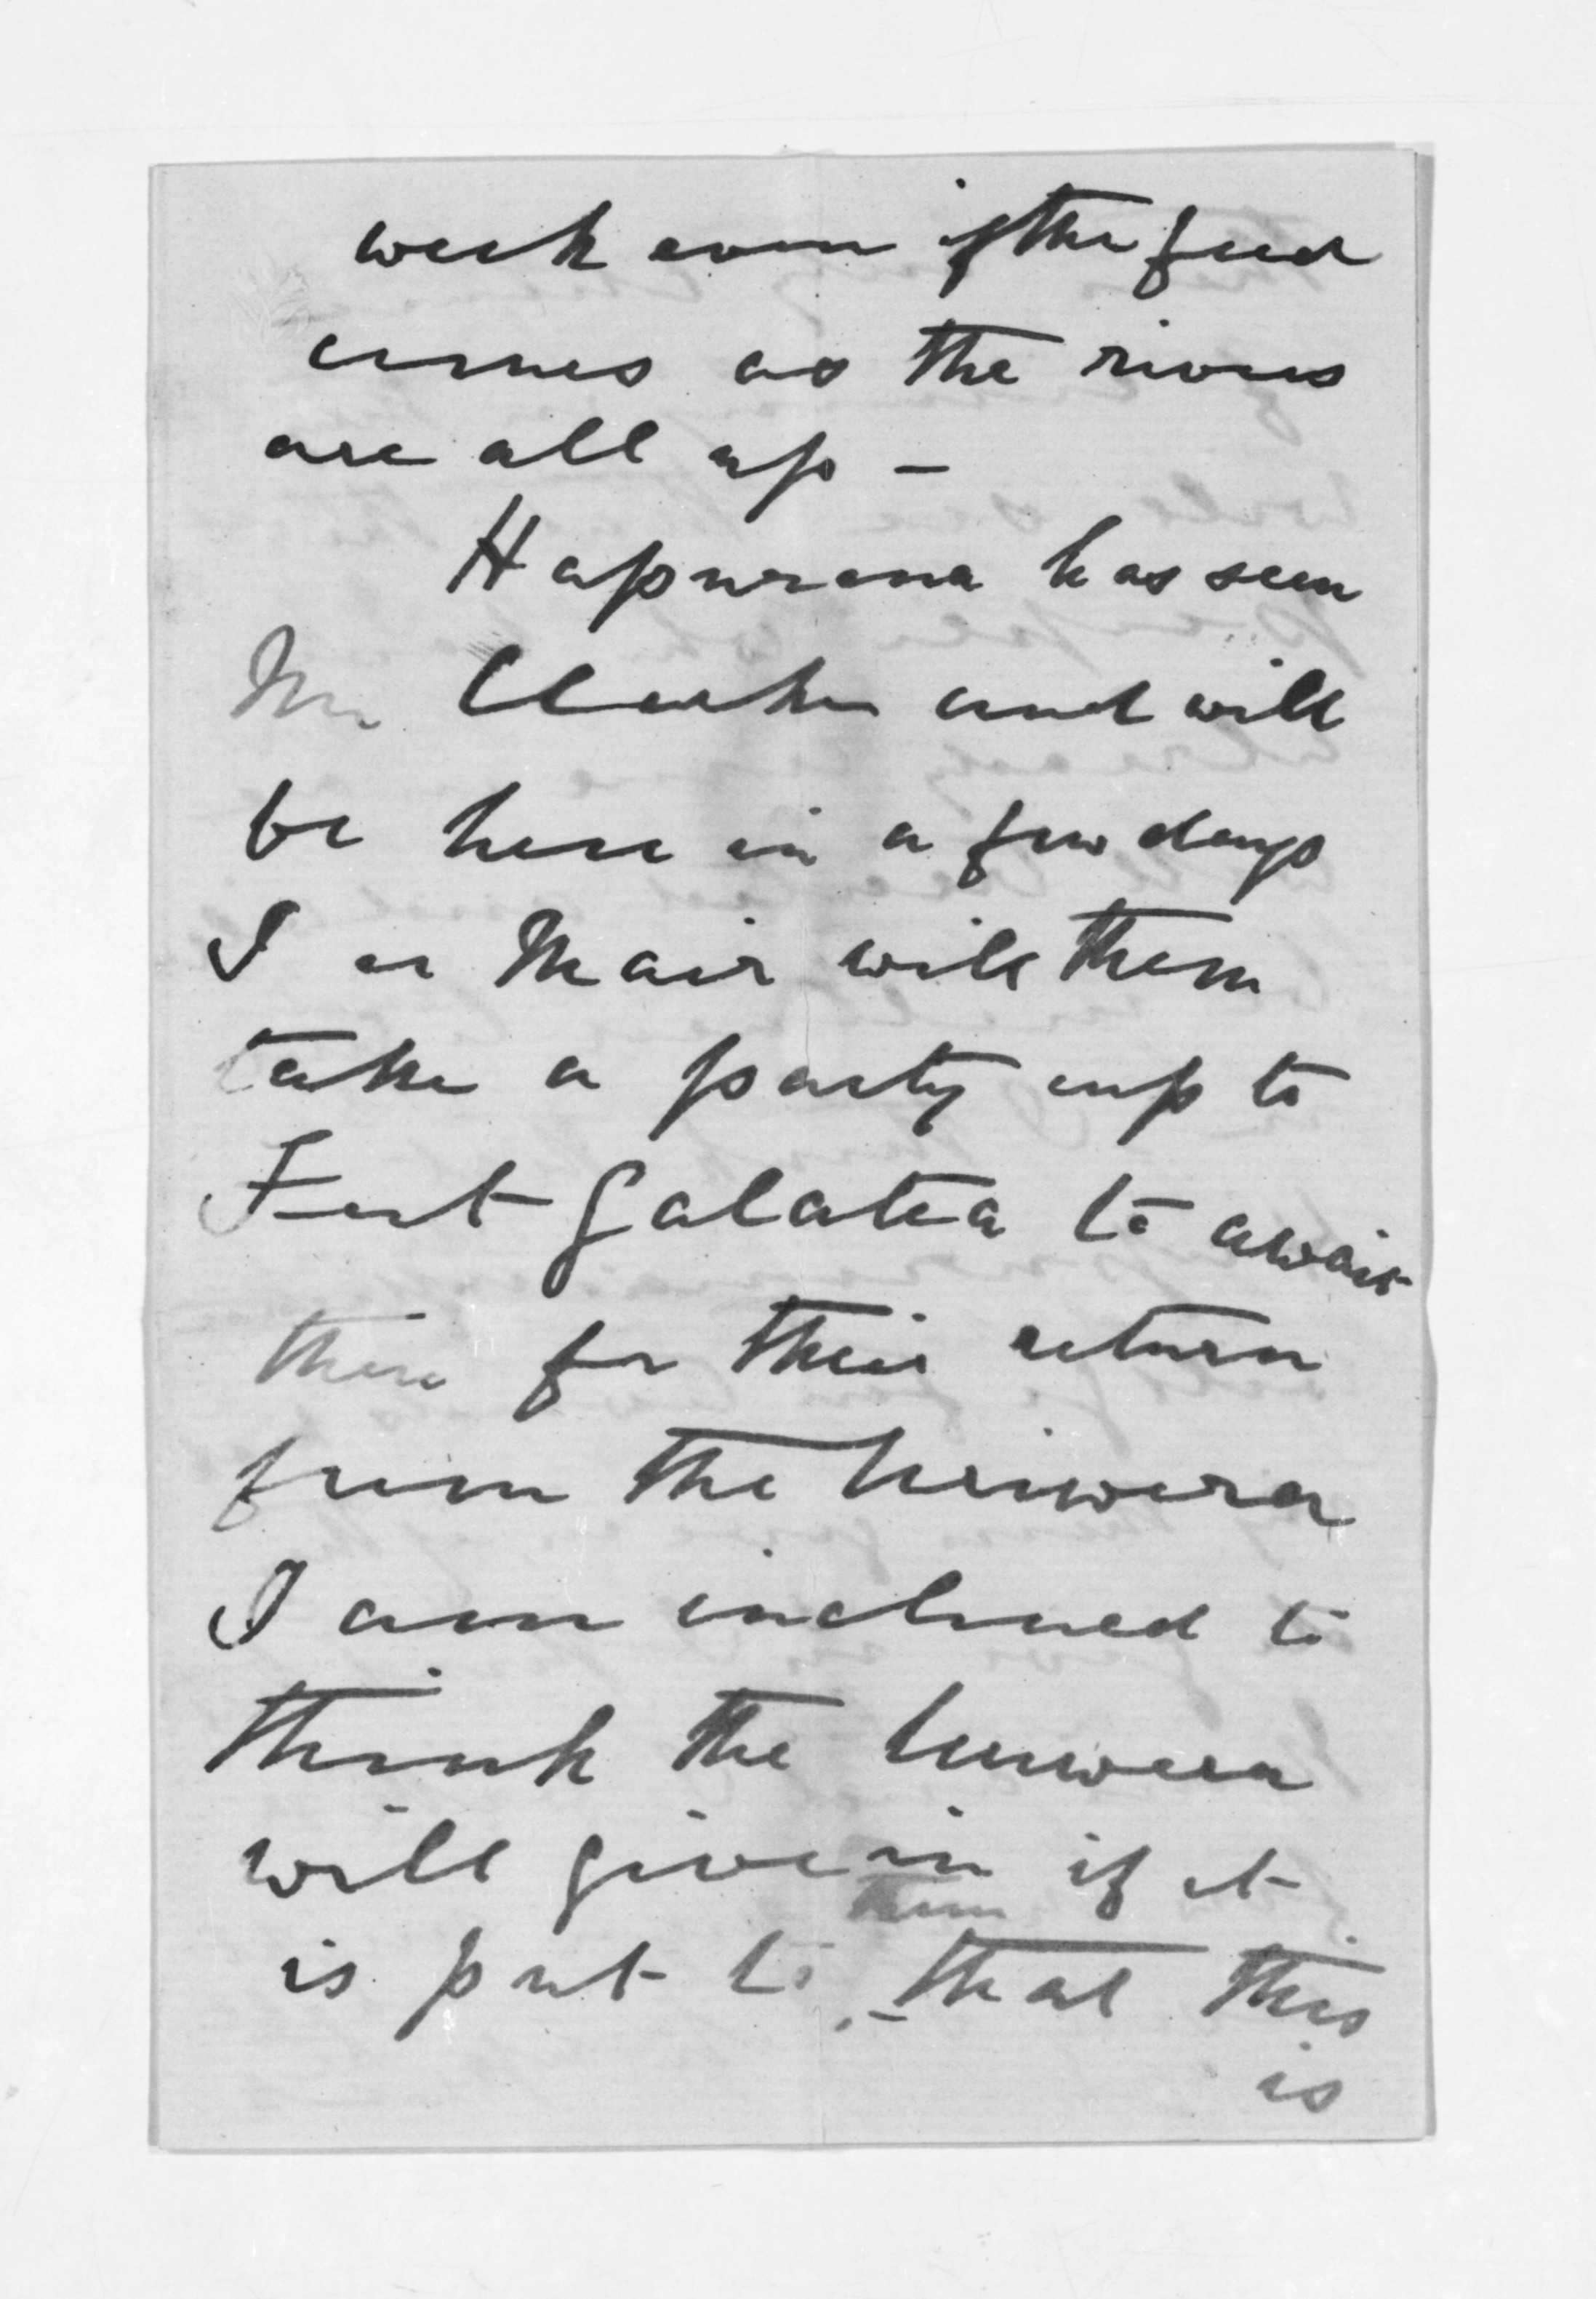 week even if the feed
comes as the rivers
are all up -
Hapurona has seen
Mr Clarke and will
be here in a few days
I or Mair will then
take a party up to
Fort Galatea to await
there for their return
from the Uriwera
I am inclined to
think the Uriwera
will give in if it
is put to them that this
is